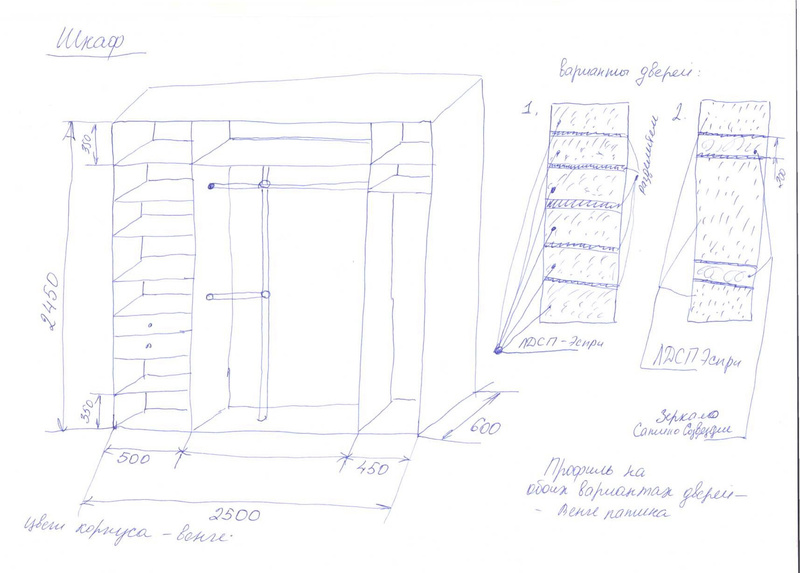 Шкаф
варианты дверей:
1.
2.
350
разделители
2450
350
ЛДСП - Эспри
ЛДСП Эспри
600
Зеркало
500
450
Профиль на
обоих вариантах дверей -
- Венге патина
2500
Цвет корпуса - венге.